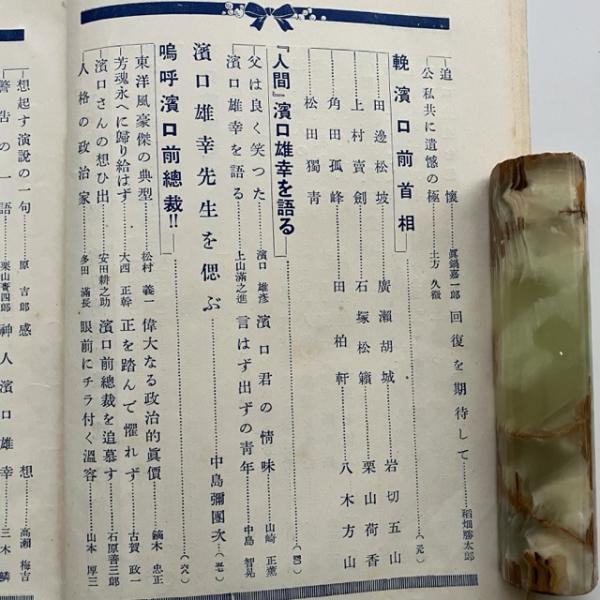 追懷 眞鍋嘉一郎 回復を期待して 稻畑勝太郎
公私共に遺憾の極 土方久徵
輓濱口前首相 (元)
田邊松坡 廣瀬胡城 岩切五山
上村賣劍 石塚松籟 栗山荷香
角田孤峰 田柏軒 八木方山
松田獨靑
『人間』濱口雄幸を語る
父は良く笑つた 濱口雄彥 濱口君の情味 山崎正董
濱口雄幸を語る 上山滿之進 言はず出ずの靑年 中島智晃
濱口雄幸先生を偲ぶ 中島彌團次
嗚呼濱口前總裁!!
東洋風豪傑の典型 松村義一 偉大なる政治的眞價 鏑木忠正
芳魂永へに歸り給はず 大西正幹 正を踏んで懼れず 古賀政一
濱口さんの想ひ出 安田耕之助 濱口前總裁を追慕す 石原善三郎
人格の政治家 多田滿長 眼前にチラ付く溫容 山本厚三
想起す演説の一句 原吉郎 感想 高瀨梅吉
警告の一語 栗山賚四郎 神人濱口雄幸 三木鱗